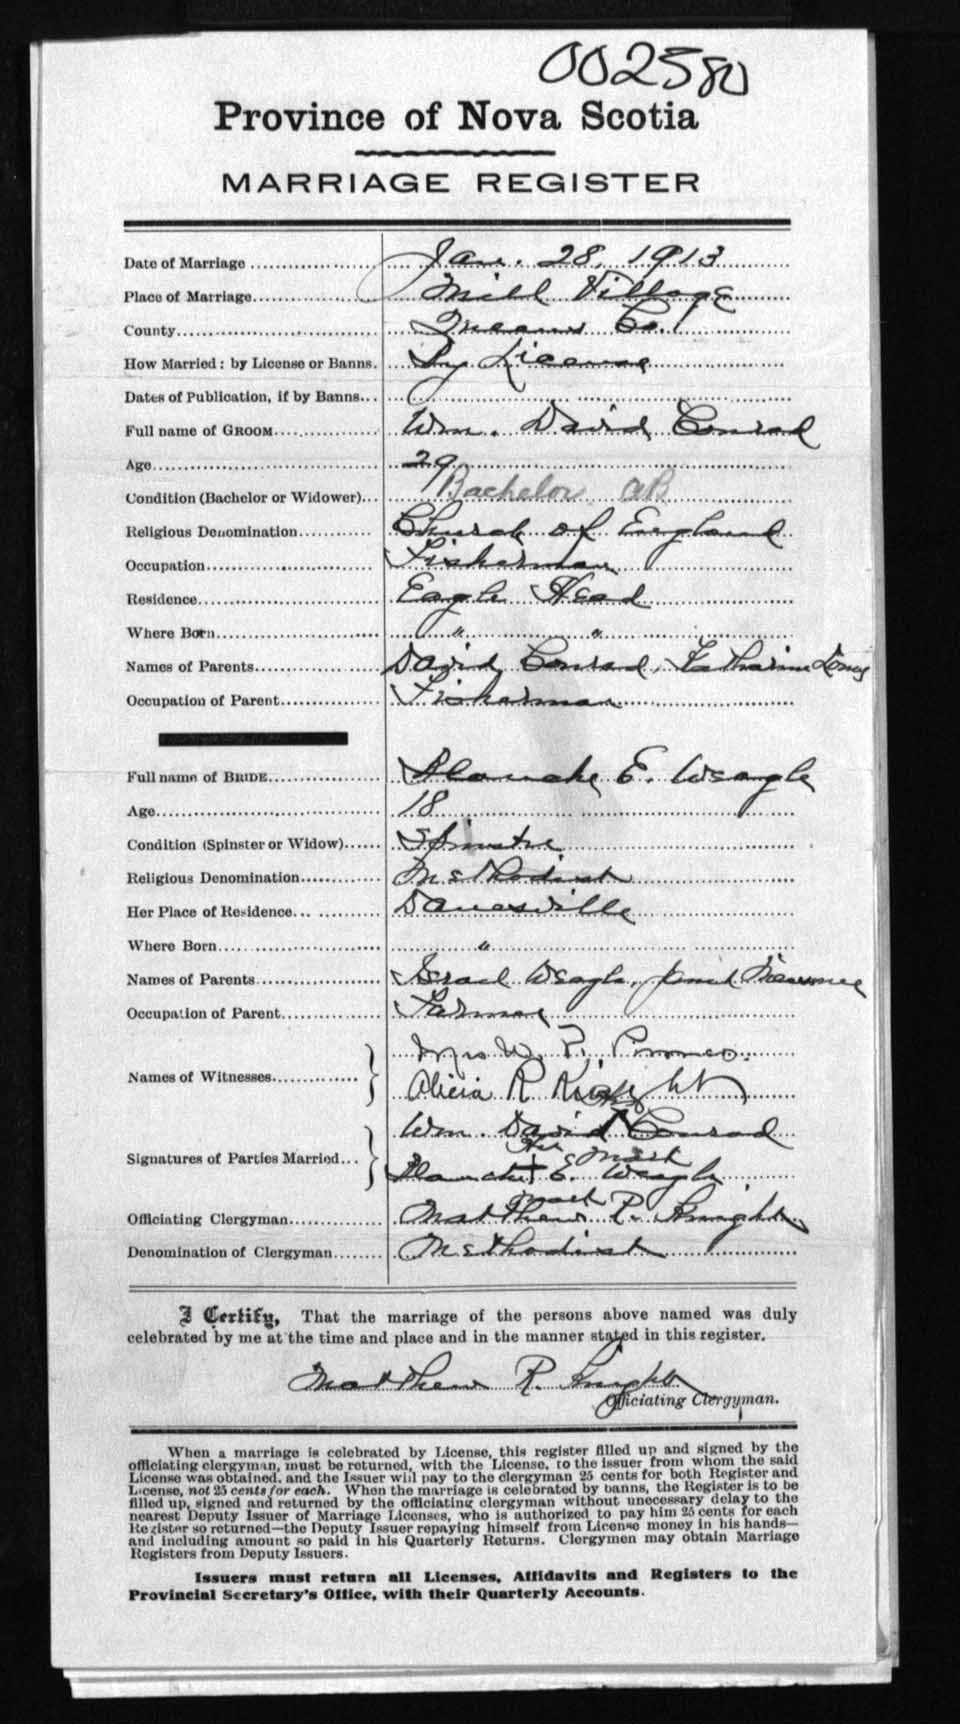 002580
Province of Nova Scotia
MARRIAGE REGISTER
Date of Marriage Jan. 28, 1913
Place of Marriage Mill Village
County Queens Co.
How Married: by License or Banns. By License
Dates of Publication, if by Banns
Full name of GROOM Wm. David Conrad
Age 29
Condition (Bachelor or Widower) Bachelor
Religious Denomination Church of England
Occupation Fisherman
Residence Eagle Head
Where Born " "
Names of Parents David Conrad, Katharine
Occupation of Parent Fisherman
Full name of BRIDE Blanche E. Weagle
Age 18
Condition (Spinster or Widow) Spinster
Religious Denomination Methodist
Her Place of Residence Danesville
Where Born "
Names of Parents Israel Weagle,
Occupation of Parent Farmer
Names of Witnesses Mrs W. P.
Alicia R Knight
Signatures of Parties Married Wm. David Conrad
Her mark
Blanche + E. Weagle
mark
Officiating Clergyman Matthew R. Knight
Denomination of Clergyman Methodist
I Certify, That the marriage of the persons above named was duly
celebrated by me at the time and place and in the manner stated in this register.
Matthew R. Knight
Officiating Clergyman.
When a marriage is celebrated by License, this register filled up and signed by the
officiating clergyman, must be returned, with the License, to the issuer from whom the said
License was obtained, and the Issuer will pay to the clergyman 25 cents for both Register and
License, not 25 cents for each. When the marriage is celebrated by banns, the Register is to be
filled up, signed and returned by the officiating clergyman without unecessary delay to the
nearest Deputy Issuer of Marriage Licenses, who is authorized to pay him 25 cents for each
Register so returned—the Deputy Issuer repaying himself from License money in his hands—
and including amount so paid in his Quarterly Returns. Clergymen may obtain Marriage
Registers from Deputy Issuers.
Issuers must return all Licenses, Affidavits and Registers to the
Provincial Secretary's Office, with their Quarterly Accounts.